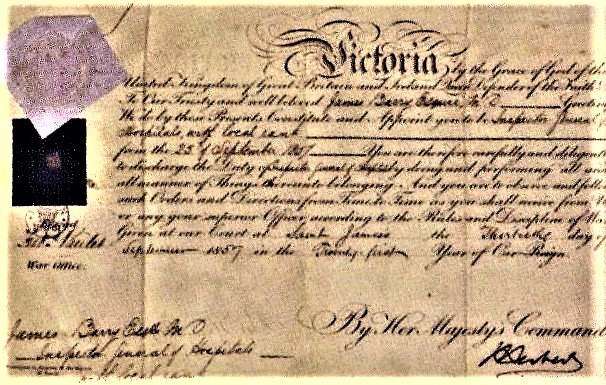 Victoria by the Grace of God of the
United Kingdom of Great Britain and Ireland Queen Defender of the Faith
To Our Trusty and well beloved James Barry Esquire M D Greeting
We do by these Presents Constitute and Appoint you to be Inspector General of
Hospitals with local rank
from the 25 September 1857 You are therefore carefully and diligently
to discharge the Duty of Inspector General of Hospitals by doing and performing all and
all manner of Things thereunto belonging And you are to observe and follow
such Orders and Directions from Time to Time as you shall receive from
or any your superior Officer according to the Rules and Discipline of War
Given at our Court at Saint James's the Thirtieth day of
September 1857 in the Twenty first Year of Our Reign
War Office
By Her Majesty's Command
James Barry Esqre M D
Inspector General of Hospitals
with local rank